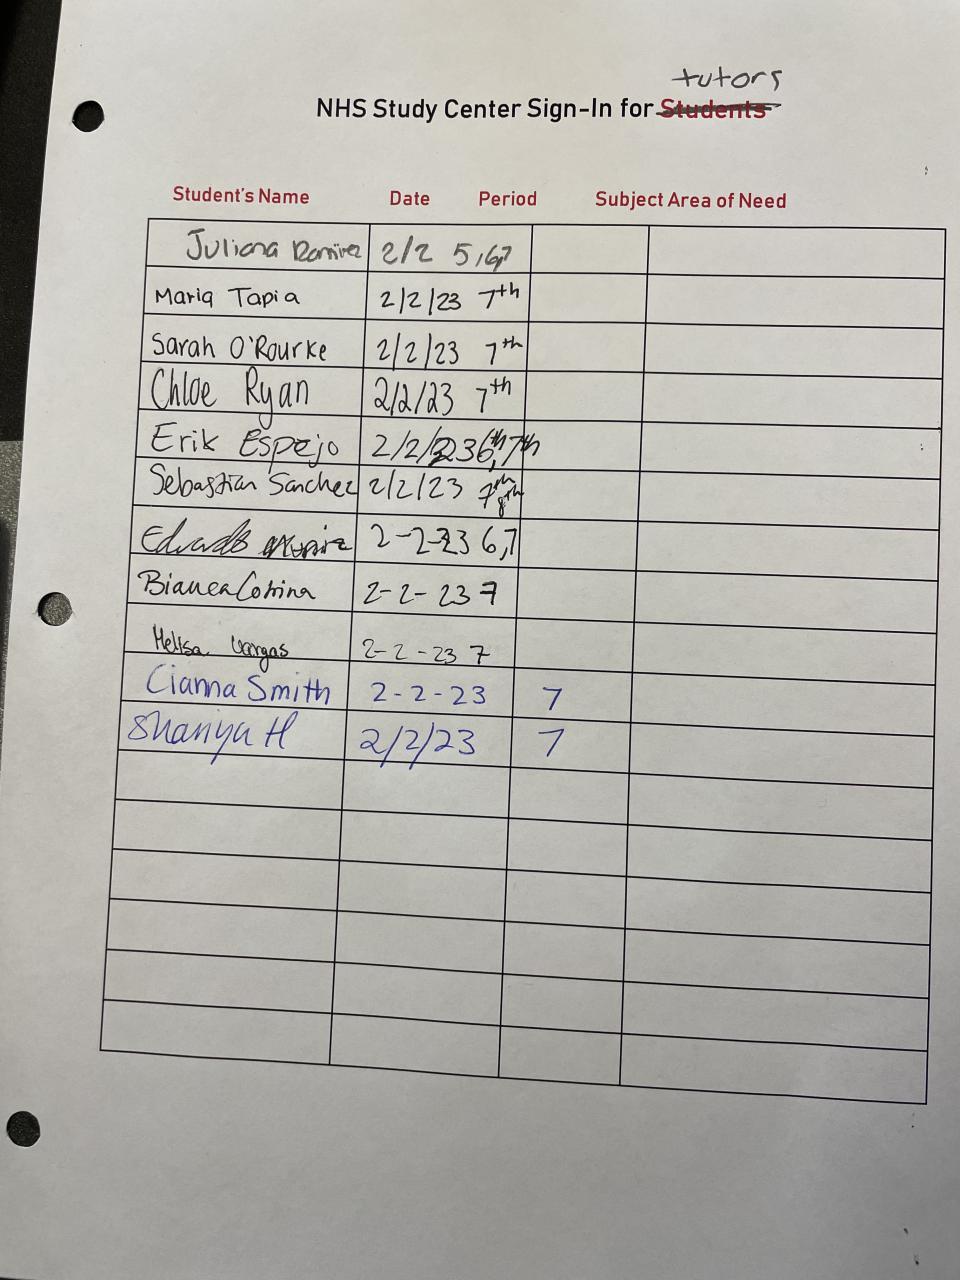 tutors
NHS Study Center Sign-In for Students
Student's Name Date Period Subject Area of Need
Juliana Ramirez 2/2 5,6,7
Maria Tapia 2/2/23 7th
Sarah O'Rourke 2/2/23 7th
Chloe Ryan 2/2/23 7th
Erik Espejo 2/2/23 6th, 7th
Sebastian Sanchez 2/2/23 7th 8th
2-2-23 6,7
Bianca 2-2-23 7
Melisa Vargas 2-2-23 7
Cianna Smith 2-2-23 7
Shaniya H 2/2/23 7